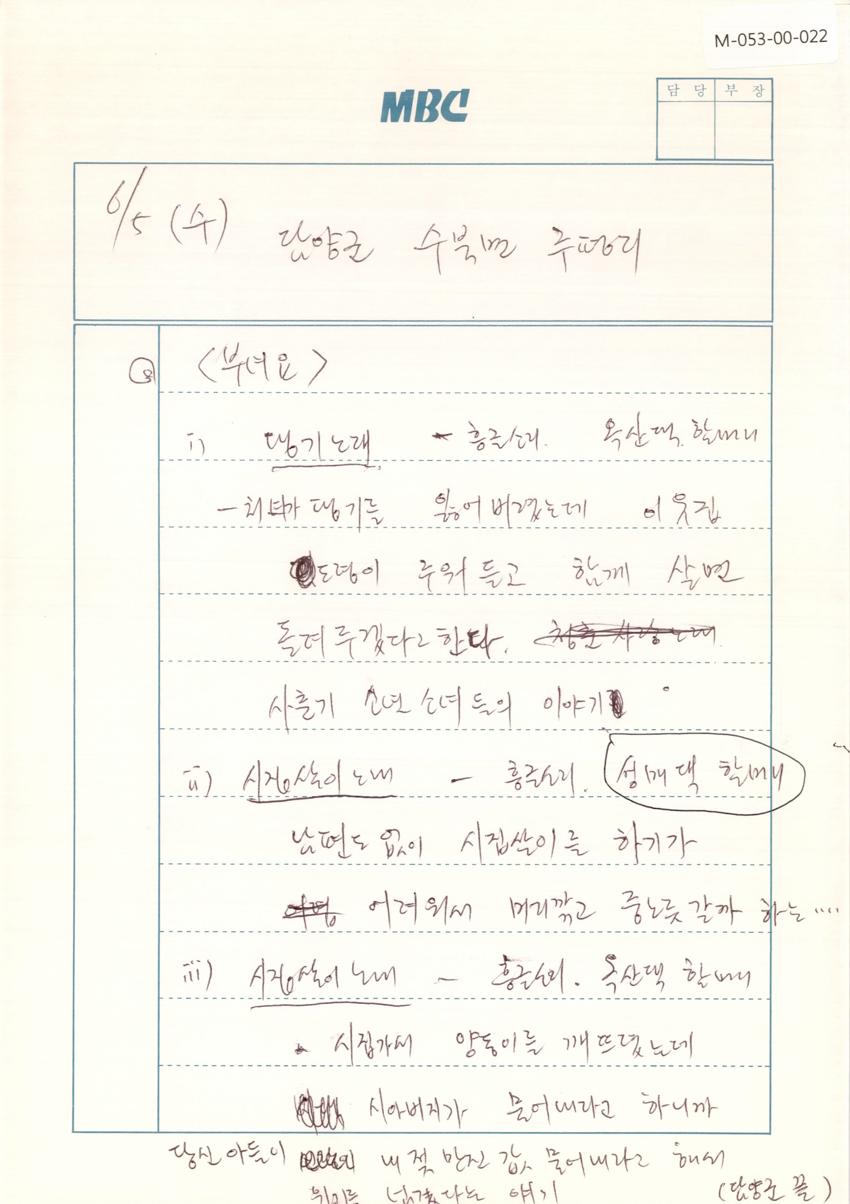 M-053-00-022
MBC
담 당 부 장
6/5 (수) 담양군 수북면 주평리
<부녀요>
i) 댕기노래 - 흥글소리. 옥산댁 할머니
- 처녀가 댕기를 잃어버렸는데 이웃집
도령이 주워 들고 함께 살면
돌려주겠다고 한다.
사춘기 소년 소녀들의 이야기
ii) 시집살이노래 - 흥글소리. 성매댁 할머니
남편도 없이 시집살이를 하기가
어려워서 머리깎고 중노릇 갈까 하는....
iii) 시집살이 노래 - 흥글소리. 옥산댁 할머니
시집가서 양동이를 깨뜨렸는데
시아버지가 물어내라고 하니까
당신 아들이 내 젖 만진 값 물어내라고 해서
위기를 넘겼다는 얘기 (담양군 끝)